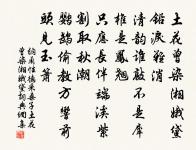 土花曾染湘娥黛
鉛淚難消
清韻誰敲不是犀
椎是鳳翹
只應長伴端溪紫
割取秋潮
鸚鵡偷教方響前
頭見玉簫
納蘭性德采桑子土花
曾染湘娥黛詞典網集